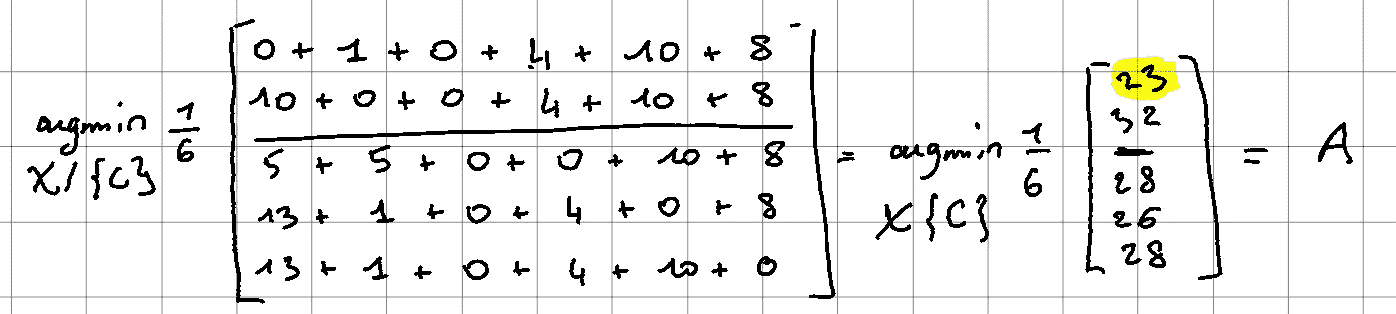 argmin X/{C} 1/6 [ 0 + 1 + 0 + 4 + 10 + 8
10 + 0 + 0 + 4 + 10 + 8
—
5 + 5 + 0 + 0 + 10 + 8
13 + 1 + 0 + 4 + 0 + 8
13 + 1 + 0 + 4 + 10 + 0 ]
= argmin X{C} 1/6 [ 23
32
—
28
26
28 ] = A